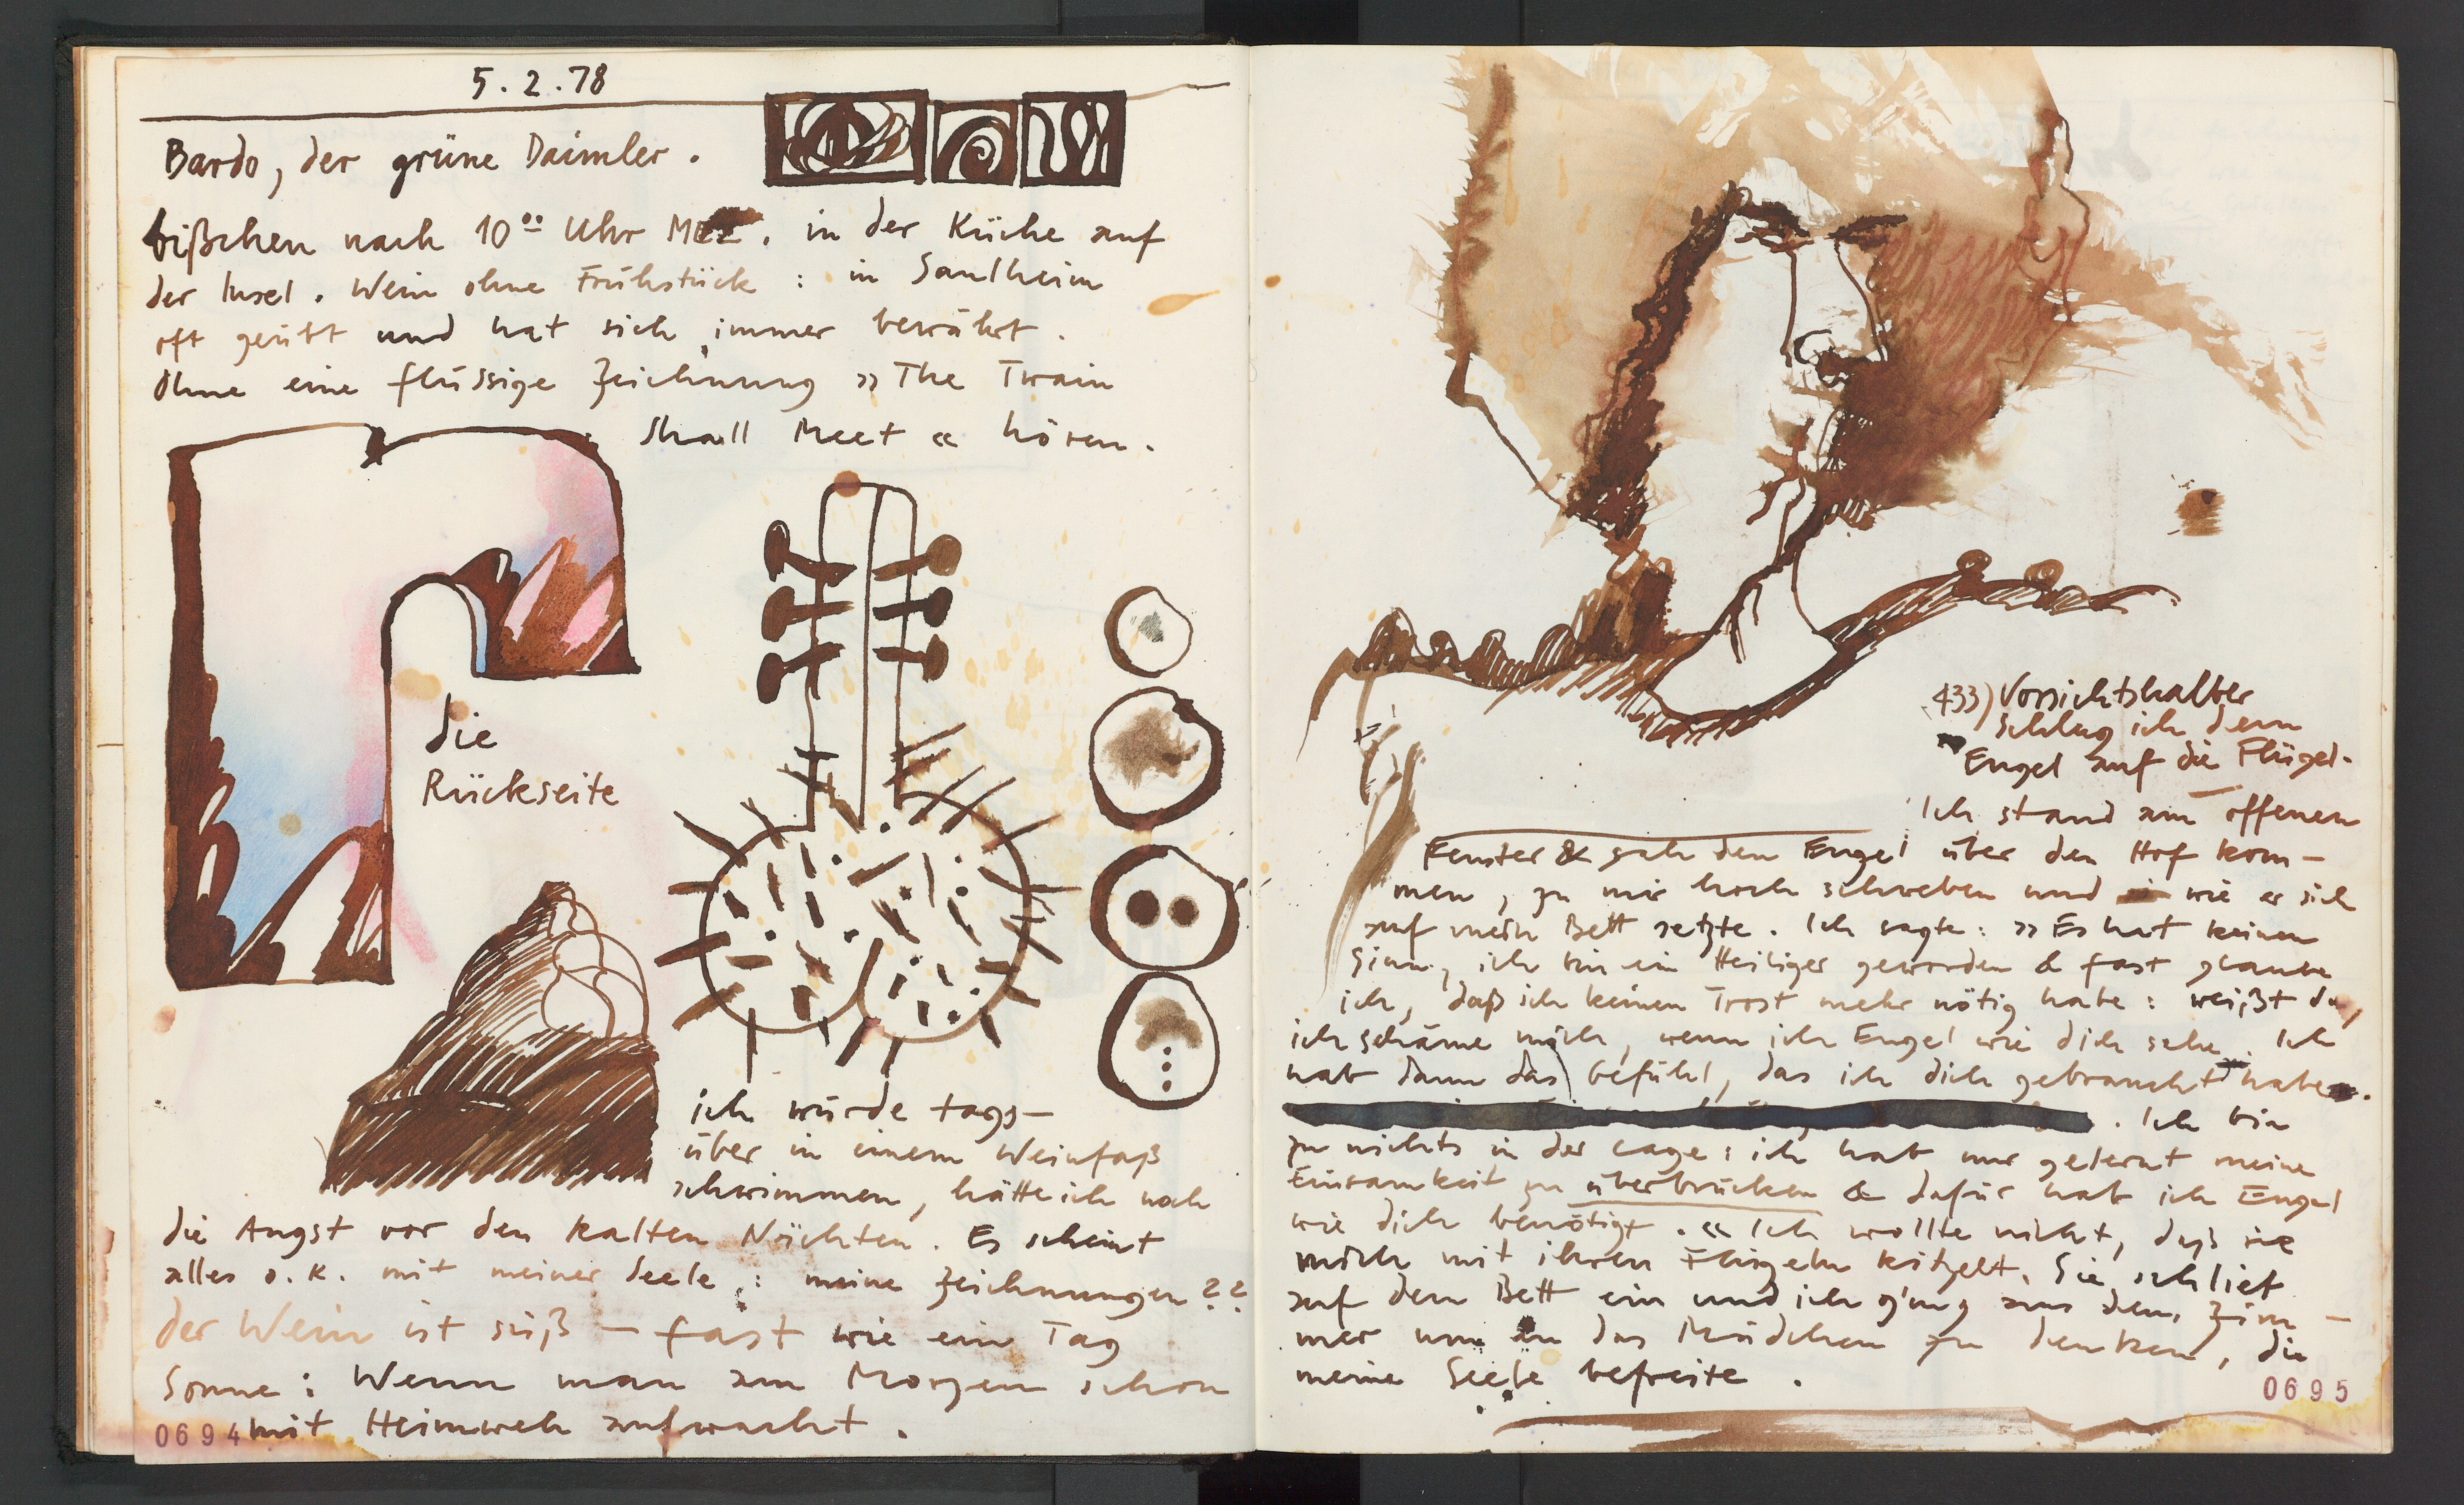 5.2.78
Bardo, der grüne Daimler.
bißchen nach 10⁰⁰ Uhr MEZ. in der Küche auf
der Insel. Wein ohne Frühstück: in Saulheim
oft geübt und hat sich immer bewährt.
Ohne eine flüssige Zeichnung »The Twain
Shall Meet« hören.
die
Rückseite
ich würde tags-
über in einem Weinfaß
schwimmen, hätte ich noch
die Angst vor den kalten Nächten. Es scheint
alles o.K. mit meiner Seele,: meine Zeichnungen??
der Wein ist süß – fast wie ein Tag
Sonne: Wenn man am Morgen schon
mit Heimweh aufwacht.
0694
433) Vorsichtshalber
schlug ich dem
Engel auf die Flügel.
Ich stand am offenen
Fenster & sah den Engel über den Hof kom-
men, zu mir hoch schweben und wie er sich
auf mein Bett setzte. Ich sagte: »Es hat keinen
Sinn, ich bin ein Heiliger geworden & fast glaube
ich, daß ich keinen Trost mehr nötig habe: weißt du,
ich schäme mich, wenn ich Engel wie dich sehe. Ich
hab dann das Gefühl, das ich dich gebraucht habe.
. Ich bin
zu nichts in der Lage: ich hab nur gelernt meine
Einsamkeit zu überbrücken & dafür hab ich Engel
wie dich benötigt.« Ich wollte nicht, daß sie
mich mit ihren Flügeln kitzelt. Sie schlief
auf dem Bett ein und ich ging aus dem Zim-
mer um an das Mädchen zu denken, die
meine Seele befreite.
0695